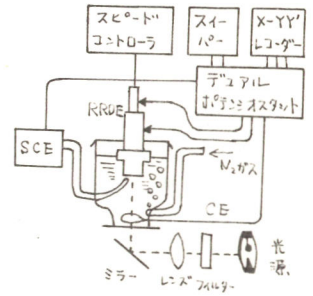 スピード
コントローラ
スイー
パー
X-YY'
レコーダー
デュアル
ポテンシオスタット
RRDE
SCE
N₂ガス
CE
ミラー
レンズ
フィルター
光
源